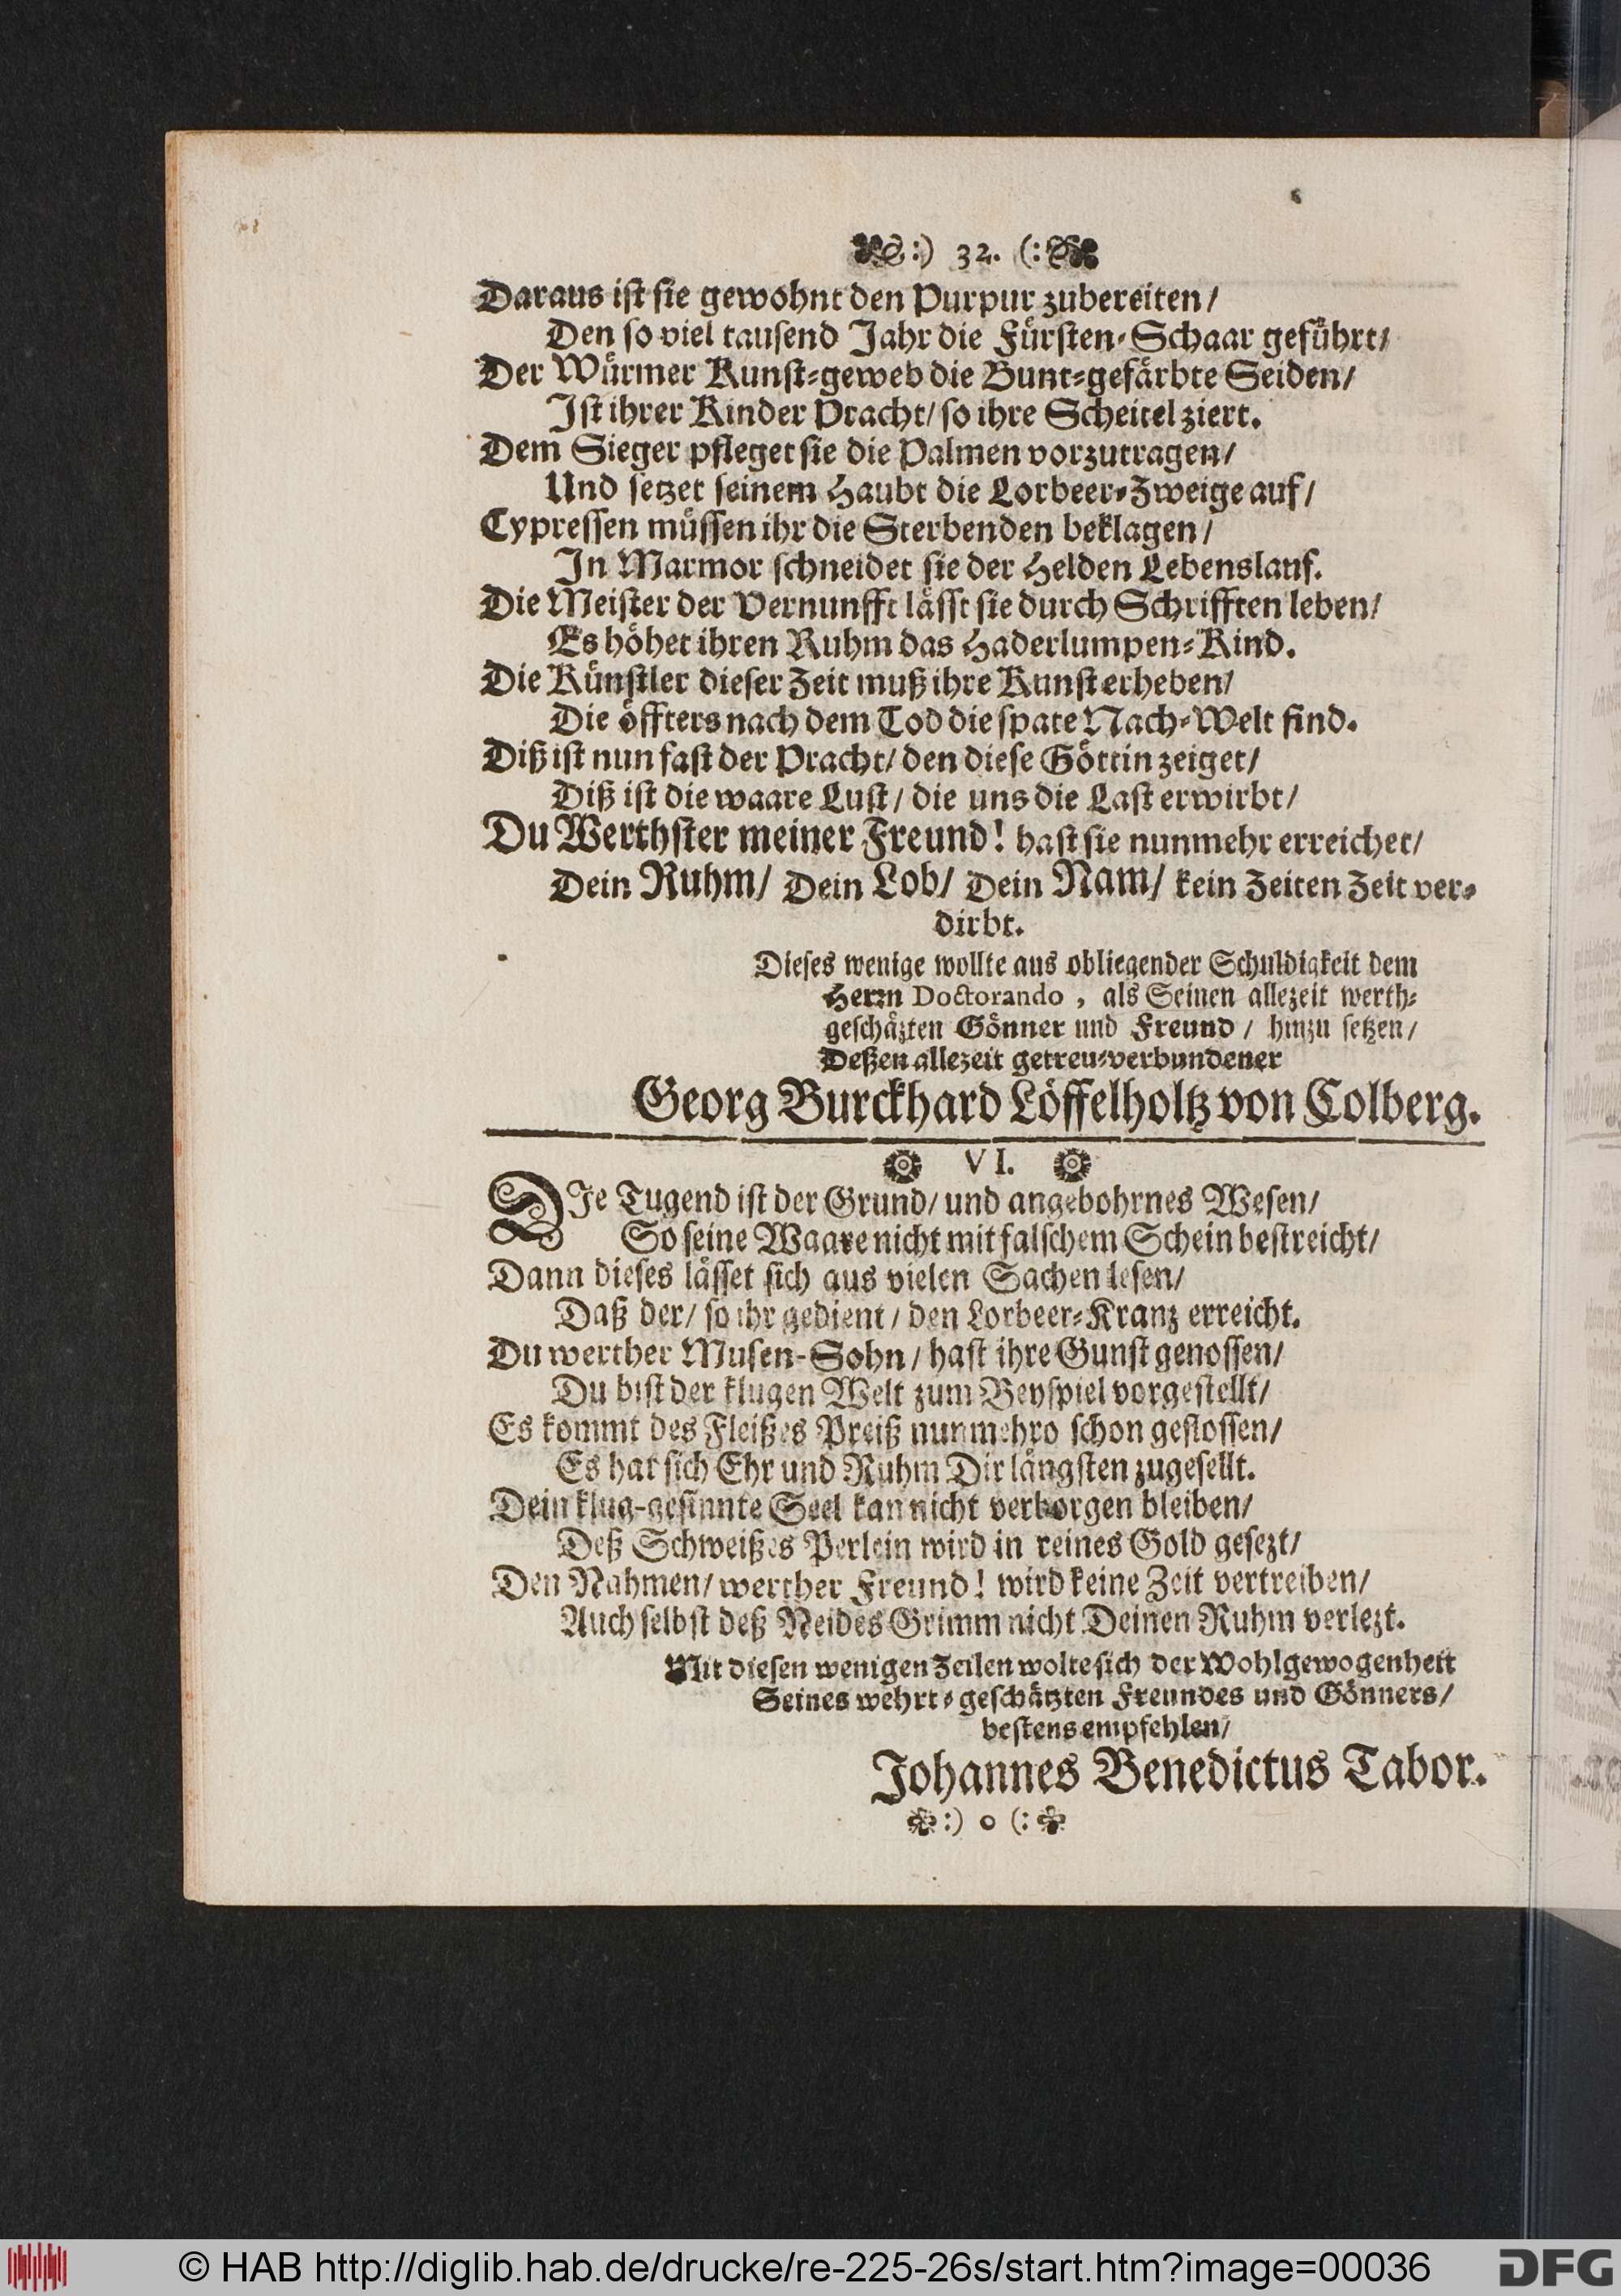 :) 32. (:
Daraus ist sie gewohnt den Purpur zubereiten/
Den so viel tausend Jahr die Fürsten-Schaar geführt/
Der Würmer Kunst-geweb die Bunt-gefärbte Seiden/
Ist ihrer Kinder Pracht/ so ihre Scheitel ziert.
Dem Sieger pfleget sie die Palmen vorzutragen/
Und setzet seinem Haubt die Lorbeer-Zweige auf/
Cypressen müssen ihr die Sterbenden beklagen/
In Marmor schneidet sie der Helden Lebenslauf.
Die Meister der Vernunfft lässt sie durch Schrifften leben/
Es höhet ihren Ruhm das Haderlumpen-Kind.
Die Künstler dieser Zeit muß ihre Kunst erheben/
Die öffters nach dem Tod die spate Nach-Welt find.
Diß ist nun fast der Pracht/ den diese Göttin zeiget/
Diß ist die waare Lust/ die uns die Last erwirbt/
Du Werthster meiner Freund! hast sie nunmehr erreichet/
Dein Ruhm/ Dein Lob/ Dein Nam/ kein Zeiten Zeit ver-
dirbt.
Dieses wenige wollte aus obliegender Schuldigkeit dem
Herrn Doctorando, als Seinen allezeit werth-
geschäzten Gönner und Freund/ hinzu setzen/
Deßen allezeit getreu-verbundener
Georg Burckhard Löffelholtz von Colberg.
VI.
DIe Tugend ist der Grund/ und angebohrnes Wesen/
So seine Waare nicht mit falschem Schein bestreicht/
Dann dieses lässet sich aus vielen Sachen lesen/
Daß der/ so ihr gedient/ den Lorbeer-Kranz erreicht.
Du werther Musen-Sohn/ hast ihre Gunst genossen/
Du bist der klugen Welt zum Beyspiel vorgestellt/
Es kommt des Fleißes Preiß nunmehro schon geflossen/
Es hat sich Ehr und Ruhm Dir längsten zugesellt.
Dein klug-gesinnte Seel kan nicht verborgen bleiben/
Deß Schweißes Perlein wird in reines Gold gesezt/
Den Nahmen/ werther Freund! wird keine Zeit vertreiben/
Auch selbst deß Neides Grimm nicht Deinen Ruhm verlezt.
Mit diesen wenigen Zeilen wolte sich der Wohlgewogenheit
Seines wehrt-geschätzten Freundes und Gönners/
bestens empfehlen/
Johannes Benedictus Tabor.
:) o (:
© HAB http://diglib.hab.de/drucke/re-225-26s/start.htm?image=00036
DFG